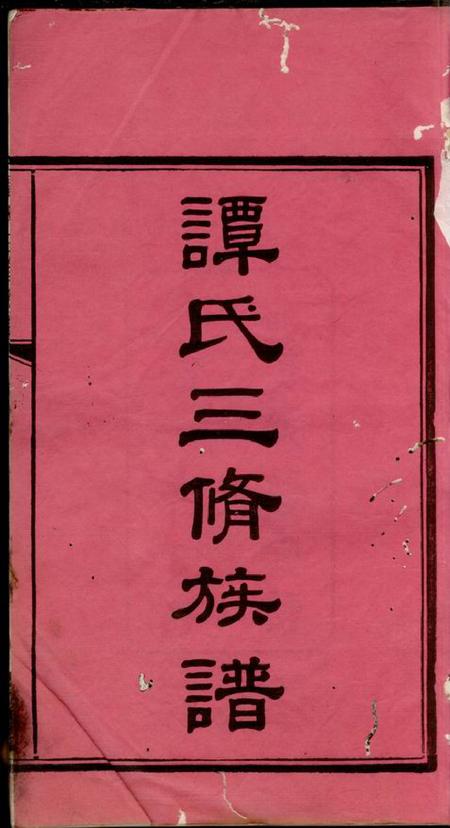 譚氏三脩族譜